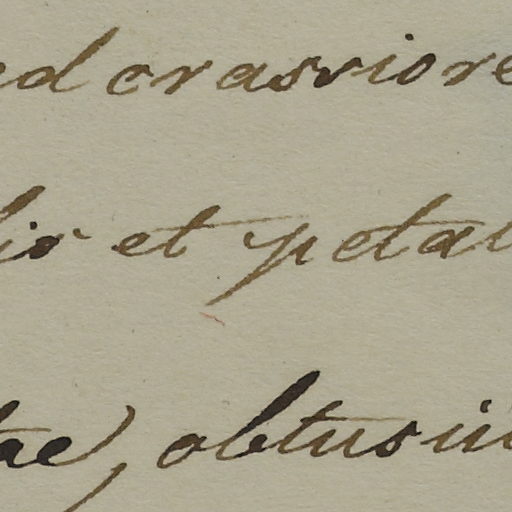 ed crassiore
lis et petal
tae, obtusiu